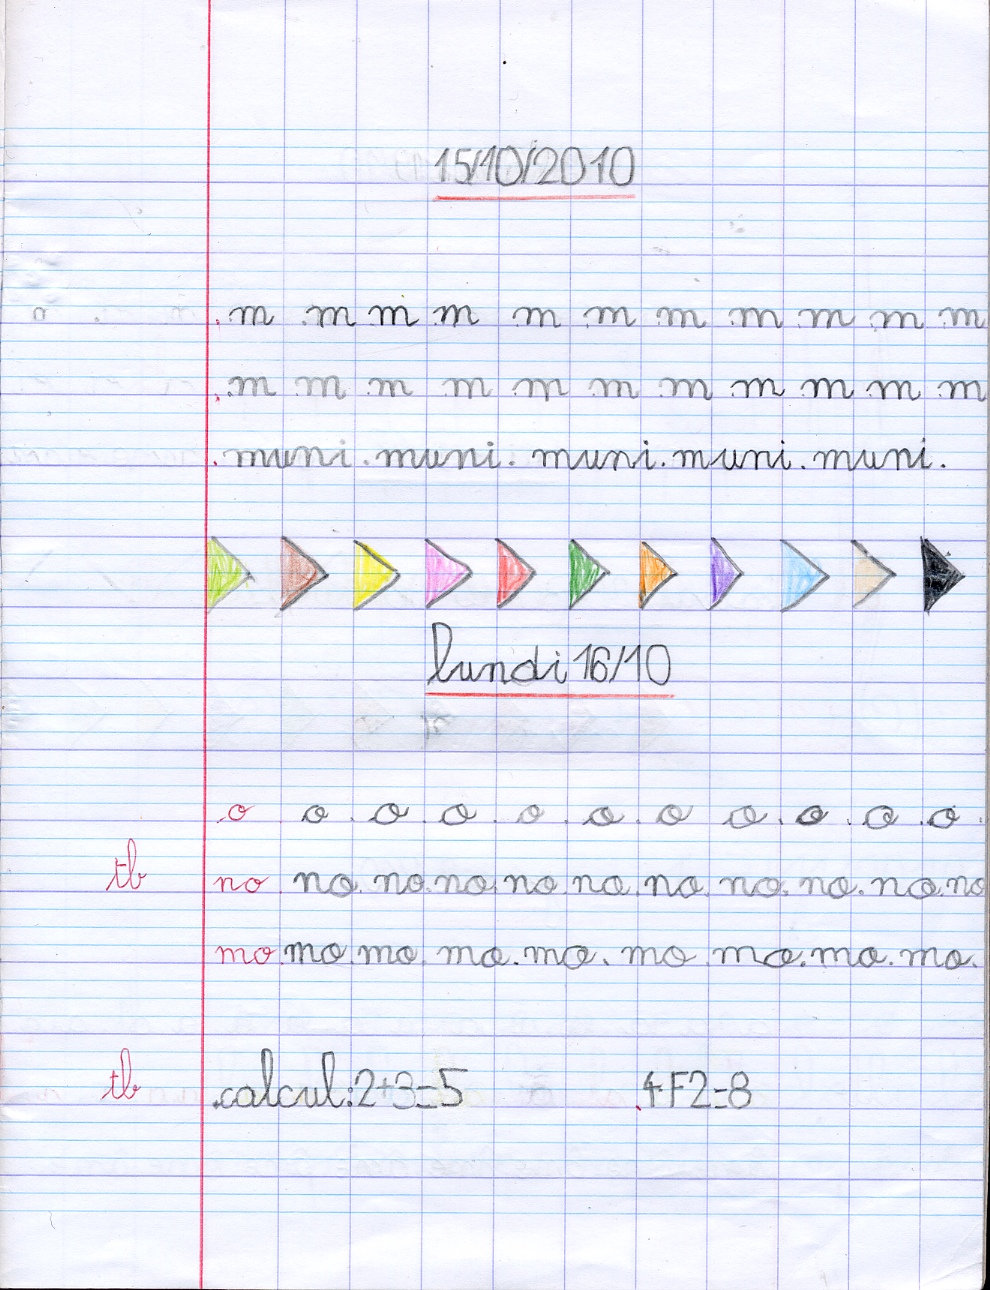 15/10/2010
.m .m m .m m m m m m m m
.m m m m m m m m m m m
.muni.muni.muni.muni.muni.
lundi 16/10
.o o.o.o.o.o.o.o.o.o.o.
tb no no.no.no.no no.no.no.no.no.no
mo mo.mo.mo.mo.mo.mo.mo.mo.
tb .calcul:2+3=5 .4F2=8